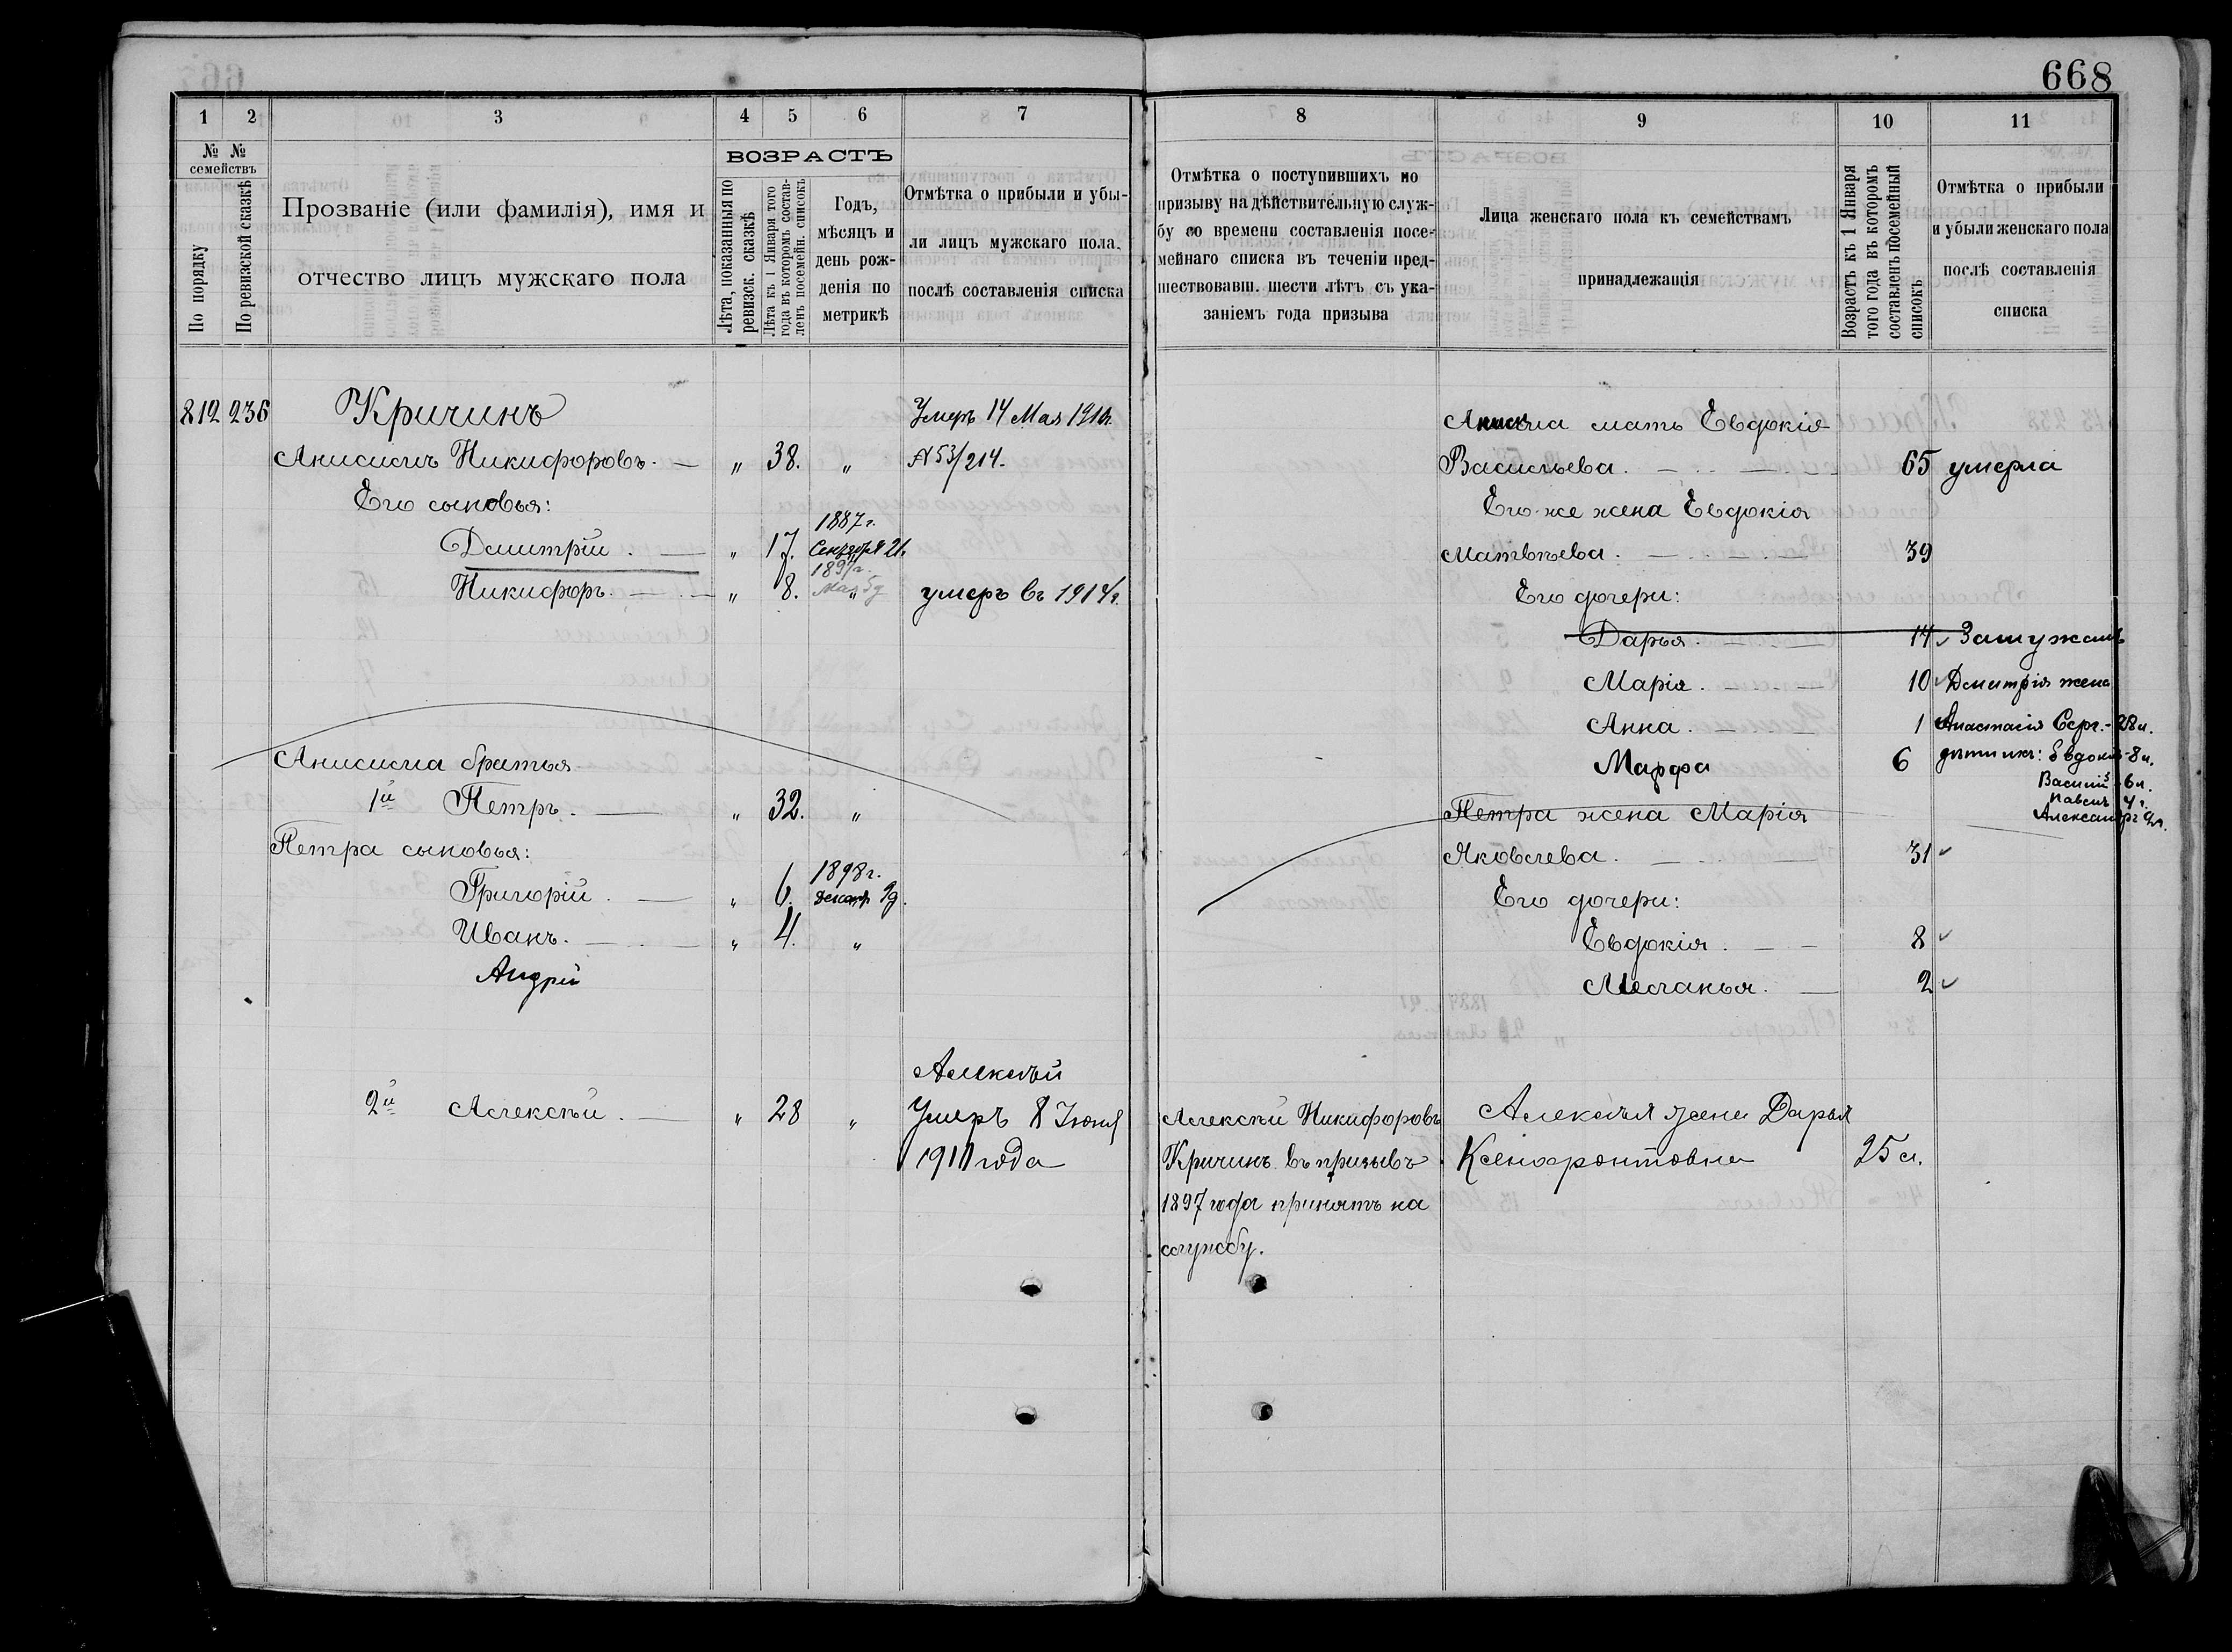 668
1 2 3 4 5 6 7
№ №
семействъ
По порядку
По ревизской сказкѣ
Прозваніе (или фамилія), имя и
отчество лицъ мужскаго пола
ВОЗРАСТЪ
Лѣта, показанныя по
ревизск. сказкѣ
Лѣта къ 1 Января того
года въ которомъ состав-
ленъ посемейн. списокъ
Годъ,
мѣсяцъ и
день рож-
денія по
метрикѣ
Отмѣтка о прибыли и убы-
ли лицъ мужскаго пола
послѣ составленія списка
812 236 Кричинъ Умеръ 14 Мая
Анисимъ Никифоровъ. — „ 38. „ № 53/214.
Его сыновья:
1887 г.
Дмитрій. — „ 17. Сентября 21.
1897 г.
Никифоръ. — „ 8. Мая 5 д умеръ въ 1914 г.
Анисима братья
1й Петръ. — „ 32. „
Петра сыновья:
1898 г.
Григорій. — „ 6. 9 д.
Иванъ. — „ 4. „
Андрей
Алексѣй
2й Алексѣй. — „ 28 „ Умеръ 8 Іюня
1911 года
8 9 10 11
Отмѣтка о поступившихъ по
призыву на дѣйствительную служ-
бу со времени составленія посе-
мейнаго списка въ теченіи пред-
шествовавш. шести лѣтъ съ ука-
заніемъ года призыва
Лица женскаго пола къ семействамъ
принадлежащія
Возрастъ къ 1 Января
того года въ которомъ
составленъ посемейный
списокъ
Отмѣтка о прибыли
и убыли женскаго пола
послѣ составленія
списка
Анисима мать Евдокія
Васильева. — 65 умерла
Его же жена Евдокія
Матвѣева. — 39
Его дочери:
Дарья. — 14 Замужемъ
Марія. — 10 Дмитрія жена
Анна. — 1 Анастасія Серг. - 28 л.
Марфа 6 дѣти ихъ: Евдокія - 8 л.
Василій - 6 л.
Павелъ 4 г.
Петра жена Марія Александръ 2 л.
Яковлева. — 31
Его дочери:
Евдокія. — 8
Меланья. — 2
Алексѣй Никифоровъ Алексѣя жена Дарья
Кричинъ въ призывъ Ксенофонтовна 25 л.
1897 года принятъ на
службу.